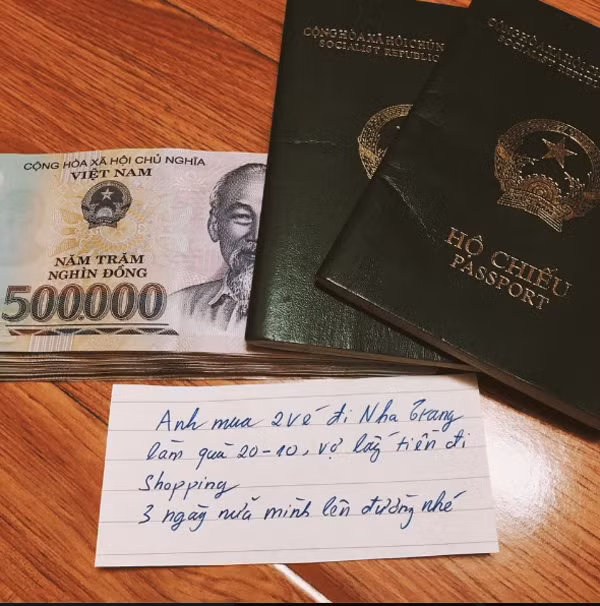 CỘNG HÒA XÃ HỘI CHỦ NGHĨA
VIỆT NAM
NĂM TRĂM
NGHÌN ĐỒNG
500.000
CỘNG HÒA XÃ HỘI CHỦ
SOCIALIST REPUBLIC
CỘNG HÒA XÃ HỘI
SOCIALIST REPU
HỘ CHIẾU
PASSPORT
Anh mua 2 vé đi Nha Trang
làm quà 20-10, vợ lấy tiền đi
Shopping
3 ngày nữa mình lên đường nhé